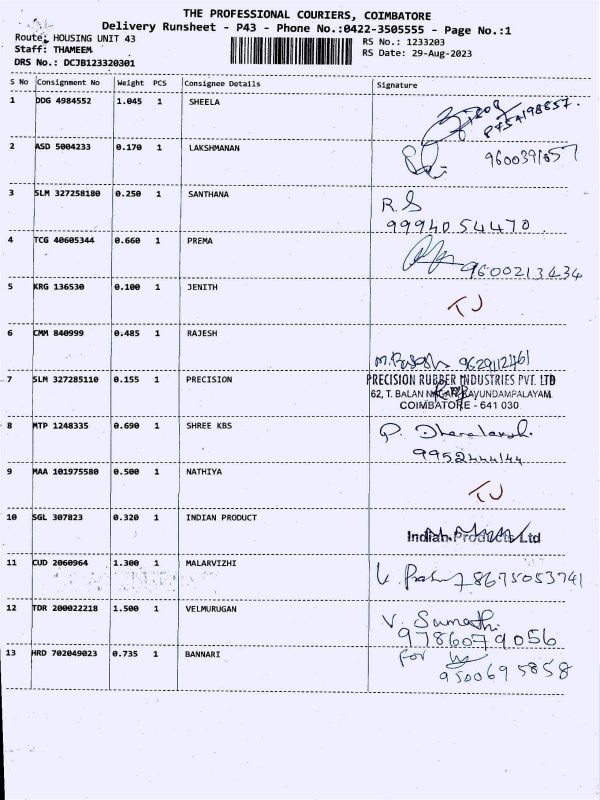 THE PROFESSIONAL COURIERS, COIMBATORE
Delivery Runsheet - P43 - Phone No.:0422-3505555 - Page No.:1
Route: HOUSING UNIT 43
RS No.: 1233203
Staff: THAMEEM
RS Date: 29-Aug-2023
DRS No.: DCJB123320301
S No Consignment No Weight PCS Consignee Details Signature
1 DDG 4984552 1.045 1 SHEELA
2 ASD 5004233 0.170 1 LAKSHMANAN
9600391057
3 SLM 327258180 0.250 1 SANTHANA
R.S
9994054470
4 TCG 40605344 0.660 1 PREMA
9600213434
5 KRG 136530 0.100 1 JENITH
TJ
6 CMM 840999 0.485 1 RAJESH
9629112461
7 SLM 327285110 0.155 1 PRECISION
PRECISION RUBBER INDUSTRIES PVT. LTD
62, T. BALAN NAGAR, KAVUNDAMPALAYAM
COIMBATORE - 641 030
8 MTP 1248335 0.690 1 SHREE KBS
9952444144
9 MAA 101975580 0.500 1 NATHIYA
TJ
10 SGL 307823 0.320 1 INDIAN PRODUCT
Indian Products Ltd
11 CUD 2060964 1.300 1 MALARVIZHI
8675053741
12 TDR 200022218 1.500 1 VELMURUGAN
V. Sumathi
9786079056
13 HRD 702049023 0.735 1 BANNARI
for
9500695858